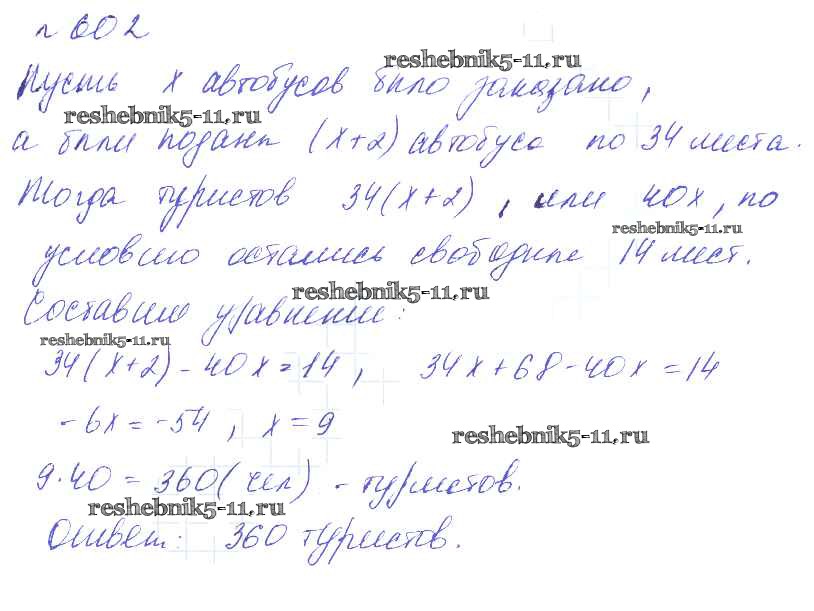 № 602
reshebnik5-11.ru
Пусть x автобусов было заказано,
reshebnik5-11.ru
а были поданы (x+2) автобуса по 34 места.
Тогда туристов 34(x+2), или 40x, по
reshebnik5-11.ru
условию остались свободные 14 мест.
reshebnik5-11.ru
Составим уравнение:
reshebnik5-11.ru
34(x+2)-40x=14, 34x+68-40x=14
-6x=-54, x=9
reshebnik5-11.ru
9·40=360(чел) - туристов.
reshebnik5-11.ru
Ответ: 360 туристов.